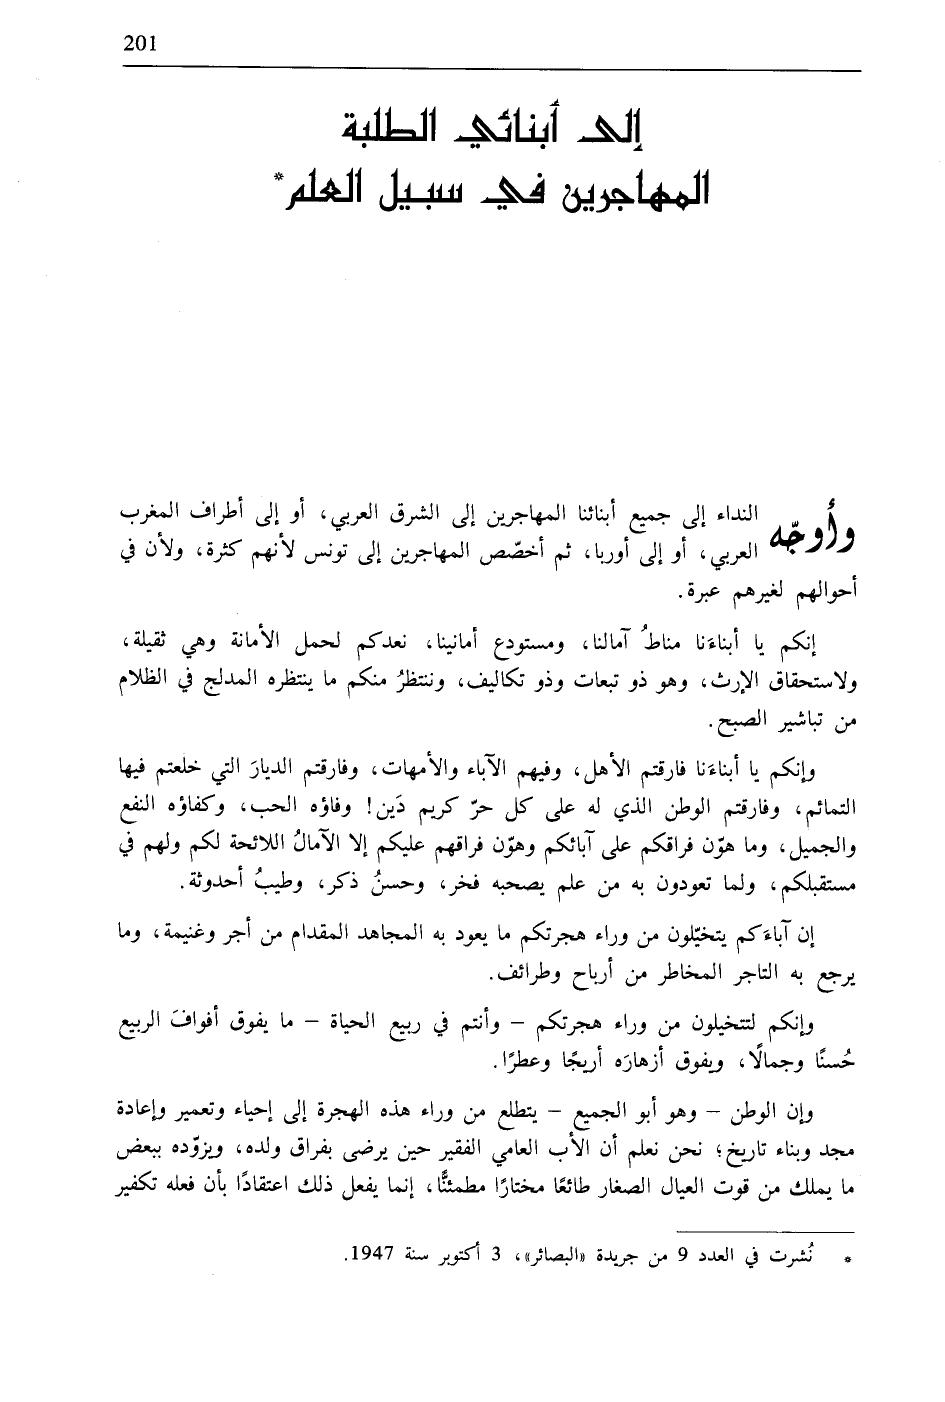 201
إلى أبنائي الطلبة
المهاجرين في سبيل العلم*
وأُوجّه النداء إلى جميع أبنائنا المهاجرين إلى الشرق العربي، أو إلى أطراف المغرب
العربي، أو إلى أوربا، ثم أخصّص المهاجرين إلى تونس لأنهم كثرة، ولأن في
أحوالهم لغيرهم عبرة.
إنكم يا أبناءَنا مناطُ آمالنا، ومستودع أمانينا، نعدكم لحمل الأمانة وهي ثقيلة،
ولاستحقاق الإرث، وهو ذو تبعات وذو تكاليف، وننتظرُ منكم ما ينتظره المدلج في الظلام
من تباشير الصبح.
وإنكم يا أبناءَنا فارقتم الأهل، وفيهم الآباء والأمهات، وفارقتم الديارَ التي خلعتم فيها
التمائم، وفارقتم الوطن الذي له على كل حرّ كريم دَين! وفاؤه الحب، وكفاؤه النفع
والجميل، وما هوّن فراقكم على آبائكم وهوّن فراقهم عليكم إلا الآمالُ اللائحة لكم ولهم في
مستقبلكم، ولما تعودون به من علم يصحبه فخر، وحسنُ ذكر، وطيبُ أحدوثة.
إن آباءَكم يتخيّلون من وراء هجرتكم ما يعود به المجاهد المقدام من أجر وغنيمة، وما
يرجع به التاجر المخاطر من أرباح وطرائف.
وإنكم لتتخيلون من وراء هجرتكم – وأنتم في ربيع الحياة – ما يفوق أفوافَ الربيع
حُسنًا وجمالًا، ويفوق أزهارَه أريجًا وعطرًا.
وإن الوطن – وهو أبو الجميع – يتطلع من وراء هذه الهجرة إلى إحياء وتعمير وإعادة
مجد وبناء تاريخ؛ نحن نعلم أن الأب العامي الفقير حين يرضى بفراق ولده، ويزوّده ببعض
ما يملك من قوت العيال الصغار طائعًا مختارًا مطمئنًّا، إنما يفعل ذلك اعتقادًا بأن فعله تكفير
* نُشرت في العدد 9 من جريدة «البصائر»، 3 أكتوبر سنة 1947.